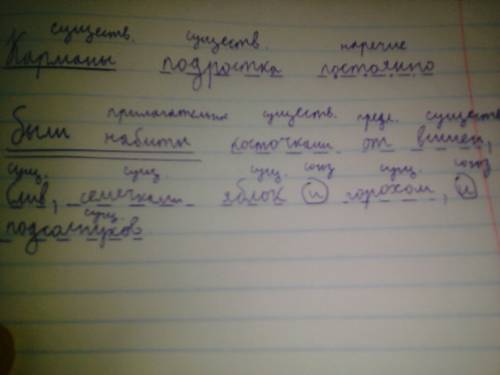 существ. существ. наречие
Карманы подростка постоянно
прилагательное существ. предл. существ.
были набиты косточками от вишен,
сущ. сущ. сущ. союз сущ. союз
слив, семечками яблок и горохом, и
сущ.
подсолнухов